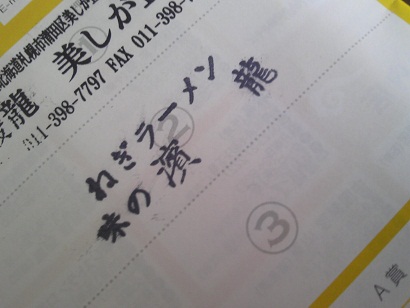 北海道札幌市清田区美しが
美しが
龍 011-398-7797 FAX 011-398-
①
ねぎラーメン
味の濱龍
②
③
A賞